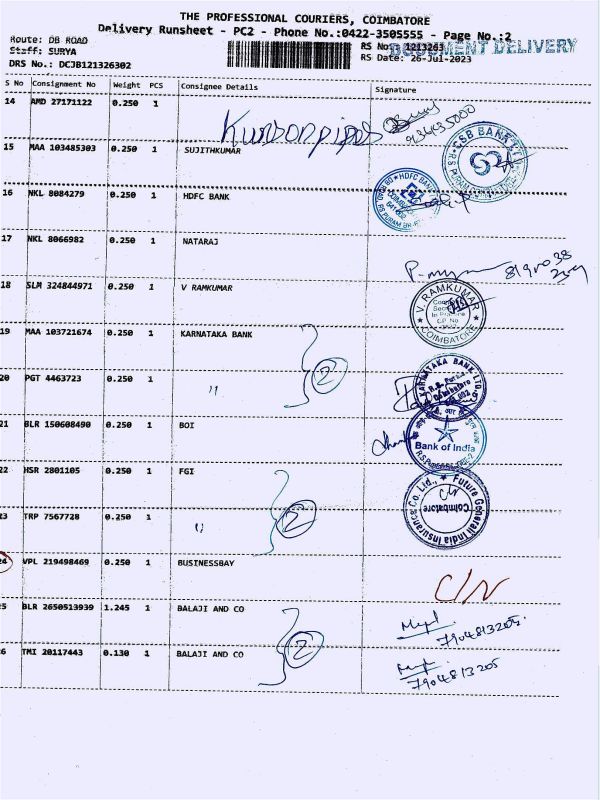 THE PROFESSIONAL COURIERS, COIMBATORE
Delivery Runsheet - PC2 - Phone No.:0422-3505555 - Page No.:2
Route: DB ROAD RS No.: 1213263 DOCUMENT DELIVERY
Staff: SURYA RS Date: 26-Jul-2023
DRS No.: DCJB121326302
S No Consignment No Weight PCS Consignee Details Signature
14 AMD 27171122 0.250 1
15 MAA 103485303 0.250 1 SUJITHKUMAR CSB BANK LTD
16 NKL 8084279 0.250 1 HDFC BANK HDFC BANK
17 NKL 8066982 0.250 1 NATARAJ
18 SLM 324844971 0.250 1 V RAMKUMAR V. RAMKUMAR COIMBATORE
19 MAA 103721674 0.250 1 KARNATAKA BANK 2
20 PGT 4463723 0.250 1 " KARNATAKA BANK LTD. R.S. Puram Coimbatore
21 BLR 150608490 0.250 1 BOI Bank of India
22 HSR 2801105 0.250 1 FGI Future Generali India Insurance Co. Ltd., Coimbatore
23 TRP 7567728 0.250 1 " 2
24 VPL 219498469 0.250 1 BUSINESSBAY C/N
25 BLR 2650513939 1.245 1 BALAJI AND CO 7904813205
26 TMI 20117443 0.130 1 BALAJI AND CO 2 7904813205